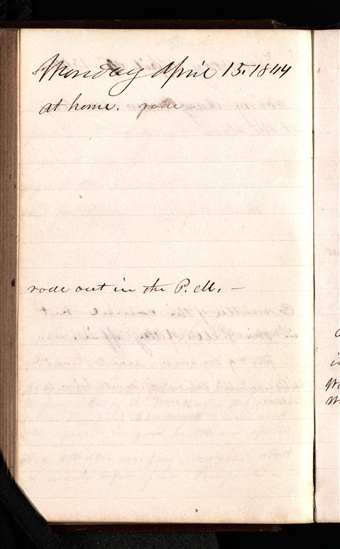 Monday April 15. 1844
at home. rode
rode out in the P.M. —